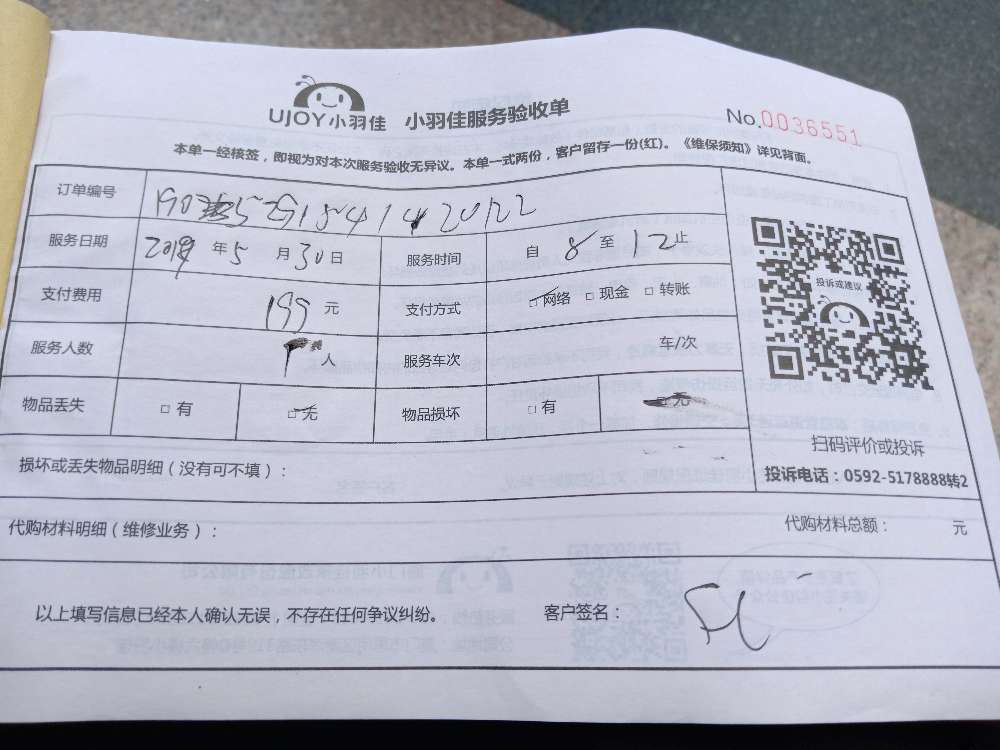 UJOY小羽佳 小羽佳服务验收单 No.0036551
本单一经核签，即视为对本次服务验收无异议。本单一式两份，客户留存一份(红)。《维保须知》详见背面。
订单编号
服务日期 2019年5月30日 服务时间 自8至12止
支付费用 199元 支付方式 □网络 □现金 □转账
服务人数 人 服务车次 车/次
物品丢失 □有 □无 物品损坏 □有 □无
投诉或建议
扫码评价或投诉
投诉电话：0592-5178888转2
损坏或丢失物品明细（没有可不填）：
代购材料明细（维修业务）： 代购材料总额： 元
以上填写信息已经本人确认无误，不存在任何争议纠纷。 客户签名：